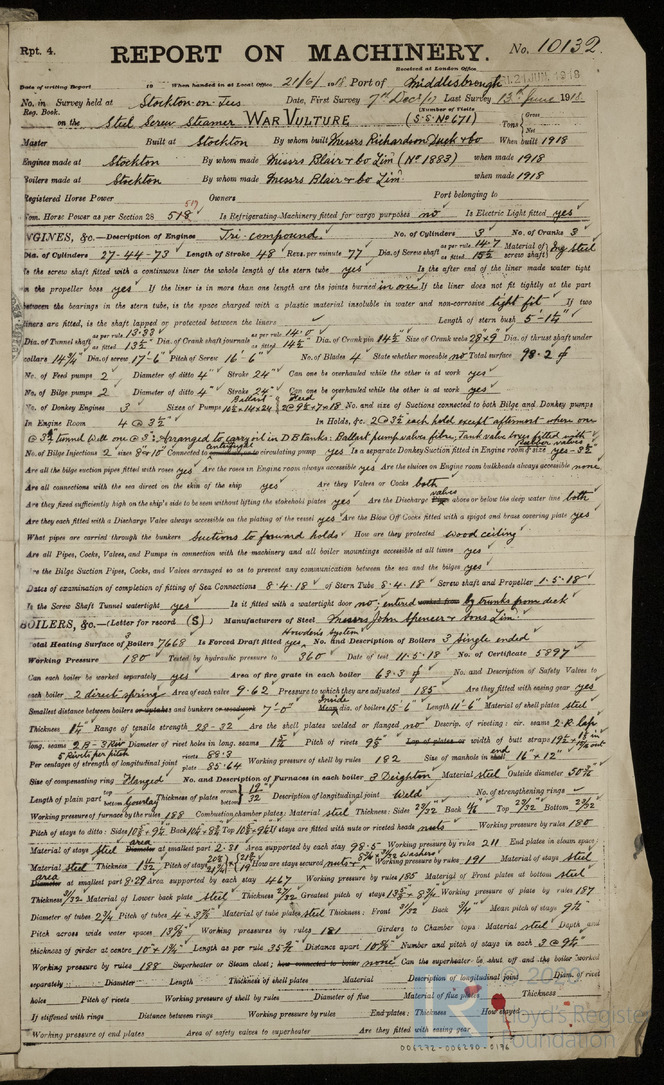 Rpt. 4.
REPORT ON MACHINERY.
No. 10132.
Received at London Office
Date of writing Report 19 When handed in at Local Office 21/6/1918 Port of Middlesbrough
No. in Survey held at Stockton-on-Tees Date, First Survey 7th Dec/17 Last Survey 13th June 1918
Reg. Book. (Number of Visits
on the Steel Screw Steamer WAR VULTURE (S.S. No 671) Tons Gross Net
Master Built at Stockton By whom built Messrs Richardson Duck & Co When built 1918
Engines made at Stockton By whom made Messrs Blair & Co Lim (No 1883) when made 1918
Boilers made at Stockton By whom made Messrs Blair & Co Lim when made 1918
Registered Horse Power Owners Port belonging to
Nom. Horse Power as per Section 28 518 Is Refrigerating Machinery fitted for cargo purposes no Is Electric Light fitted yes
ENGINES, &c.—Description of Engines Tri-compound No. of Cylinders 3 No. of Cranks 3
Dia. of Cylinders 27-44-73 Length of Stroke 48 Revs. per minute 77 Dia. of Screw shaft as per rule 14.7 as fitted Material of screw shaft Ing steel
Is the screw shaft fitted with a continuous liner the whole length of the stern tube yes Is the after end of the liner made water tight
in the propeller boss yes If the liner is in more than one length are the joints burned in one If the liner does not fit tightly at the part
between the bearings in the stern tube, is the space charged with a plastic material insoluble in water and non-corrosive tight fit If two
liners are fitted, is the shaft lapped or protected between the liners Length of stern bush 5'-1½"
Dia. of Tunnel shaft as per rule 13.33 as fitted 13½" Dia. of Crank shaft journals as per rule 14.0 as fitted 14½" Dia. of Crank pin 14½" Size of Crank webs 28×9" Dia. of thrust shaft under
collars 14¾" Dia. of screw 17'-6" Pitch of Screw 16'-6" No. of Blades 4 State whether moveable no Total surface 98.2
No. of Feed pumps 2 Diameter of ditto 4" Stroke 24" Can one be overhauled while the other is at work yes
No. of Bilge pumps 2 Diameter of ditto 4" Stroke 24" Can one be overhauled while the other is at work yes
No. of Donkey Engines 3 Sizes of Pumps Ballast Feed No. and size of Suctions connected to both Bilge and Donkey pumps
In Engine Room 4 @ 3½" In Holds, &c. 2 @ 3½ each hold except aftermost where one
@ 3½ tunnel well one @ 3" Arranged to carry oil in D.B tanks: Ballast pump valves fibre, Tank valve boxes fitted with
No. of Bilge Injections 2 sizes 8" 10" Connected to centrifugal circulating pump yes Is a separate Donkey Suction fitted in Engine room & size yes - 3½
Are all the bilge suction pipes fitted with roses yes Are the roses in Engine room always accessible yes Are the sluices on Engine room bulkheads always accessible none
Are all connections with the sea direct on the skin of the ship yes Are they Valves or Cocks both
Are they fixed sufficiently high on the ship's side to be seen without lifting the stokehold plates yes Are the Discharge valves above or below the deep water line both
Are they each fitted with a Discharge Valve always accessible on the plating of the vessel yes Are the Blow Off Cocks fitted with a spigot and brass covering plate yes
What pipes are carried through the bunkers Suctions to forward holds How are they protected wood ceiling
Are all Pipes, Cocks, Valves, and Pumps in connection with the machinery and all boiler mountings accessible at all times yes
Are the Bilge Suction Pipes, Cocks, and Valves arranged so as to prevent any communication between the sea and the bilges yes
Dates of examination of completion of fitting of Sea Connections 8.4.18 of Stern Tube 8.4.18 Screw shaft and Propeller 1.5.18
Is the Screw Shaft Tunnel watertight yes Is it fitted with a watertight door no, entered worked from by trunks from deck
BOILERS, &c.—(Letter for record (S)) Manufacturers of Steel Messrs John Spencer & Sons Lim
Total Heating Surface of Boilers 7668 Is Forced Draft fitted yes Howden's System No. and Description of Boilers 3 Single ended
Working Pressure 180 Tested by hydraulic pressure to 360 Date of test 11.5.18 No. of Certificate 5897
Can each boiler be worked separately yes Area of fire grate in each boiler 63.3 No. and Description of Safety Valves to
each boiler 2 direct spring Area of each valve 9.62 Pressure to which they are adjusted 185 Are they fitted with easing gear yes
Smallest distance between boilers or uptakes and bunkers or woodwork 7'-0" Inside dia. of boilers 15'-6" Length 11'-6" Material of shell plates steel
Thickness 1¼ Range of tensile strength 28-32 Are the shell plates welded or flanged no Descrip. of riveting: cir. seams 2.R. lap
long. seams 2B-3Riv Diameter of rivet holes in long. seams Pitch of rivets Lap of plates or width of butt straps
Per centages of strength of longitudinal joint rivets 88.3 plate 85.64 Working pressure of shell by rules 182 Size of manhole in end 16" × 12"
Size of compensating ring Flanged No. and Description of Furnaces in each boiler 3 Deighton Material steel Outside diameter
Length of plain part top bottom Thickness of plates crown bottom 19/32 Description of longitudinal joint Weld No. of strengthening rings
Working pressure of furnace by the rules 188 Combustion chamber plates: Material steel Thickness: Sides 23/32 Back Top 23/32 Bottom 23/32
Pitch of stays to ditto: Sides Back Top If stays are fitted with nuts or riveted heads nuts Working pressure by rules 180
Material of stays steel area Diameter at smallest part 2.31 Area supported by each stay 98.5 Working pressure by rules 211 End plates in steam space:
Material steel Thickness 1 1/32 Pitch of stays How are stays secured nuts & washers Working pressure by rules 191 Material of stays steel
area Diameter at smallest part 9.29 Area supported by each stay 467 Working pressure by rules 185 Material of Front plates at bottom steel
Thickness 31/32 Material of Lower back plate steel Thickness Greatest pitch of stays Working pressure of plate by rules 187
Diameter of tubes 2¾ Pitch of tubes 4 × 3⅞ Material of tube plates steel Thickness: Front Back ¾" Mean pitch of stays
Pitch across wide water spaces Working pressures by rules 181 Girders to Chamber tops: Material steel Depth and
thickness of girder at centre 10" × 1¼" Length as per rule 35½" Distance apart Number and pitch of stays in each 3 @ 9½"
Working pressure by rules 188 Superheater or Steam chest; how connected to boiler none Can the superheater be shut off and the boiler worked
separately Diameter Length Thickness of shell plates Material Description of longitudinal joint Diam. of rivet
holes Pitch of rivets Working pressure of shell by rules Diameter of flue Material of flue plates Thickness
If stiffened with rings Distance between rings Working pressure by rules End plates: Thickness How stayed
Working pressure of end plates Area of safety valves to superheater Are they fitted with easing gear
006272-006280-0176
Lloyd's Register
Foundation